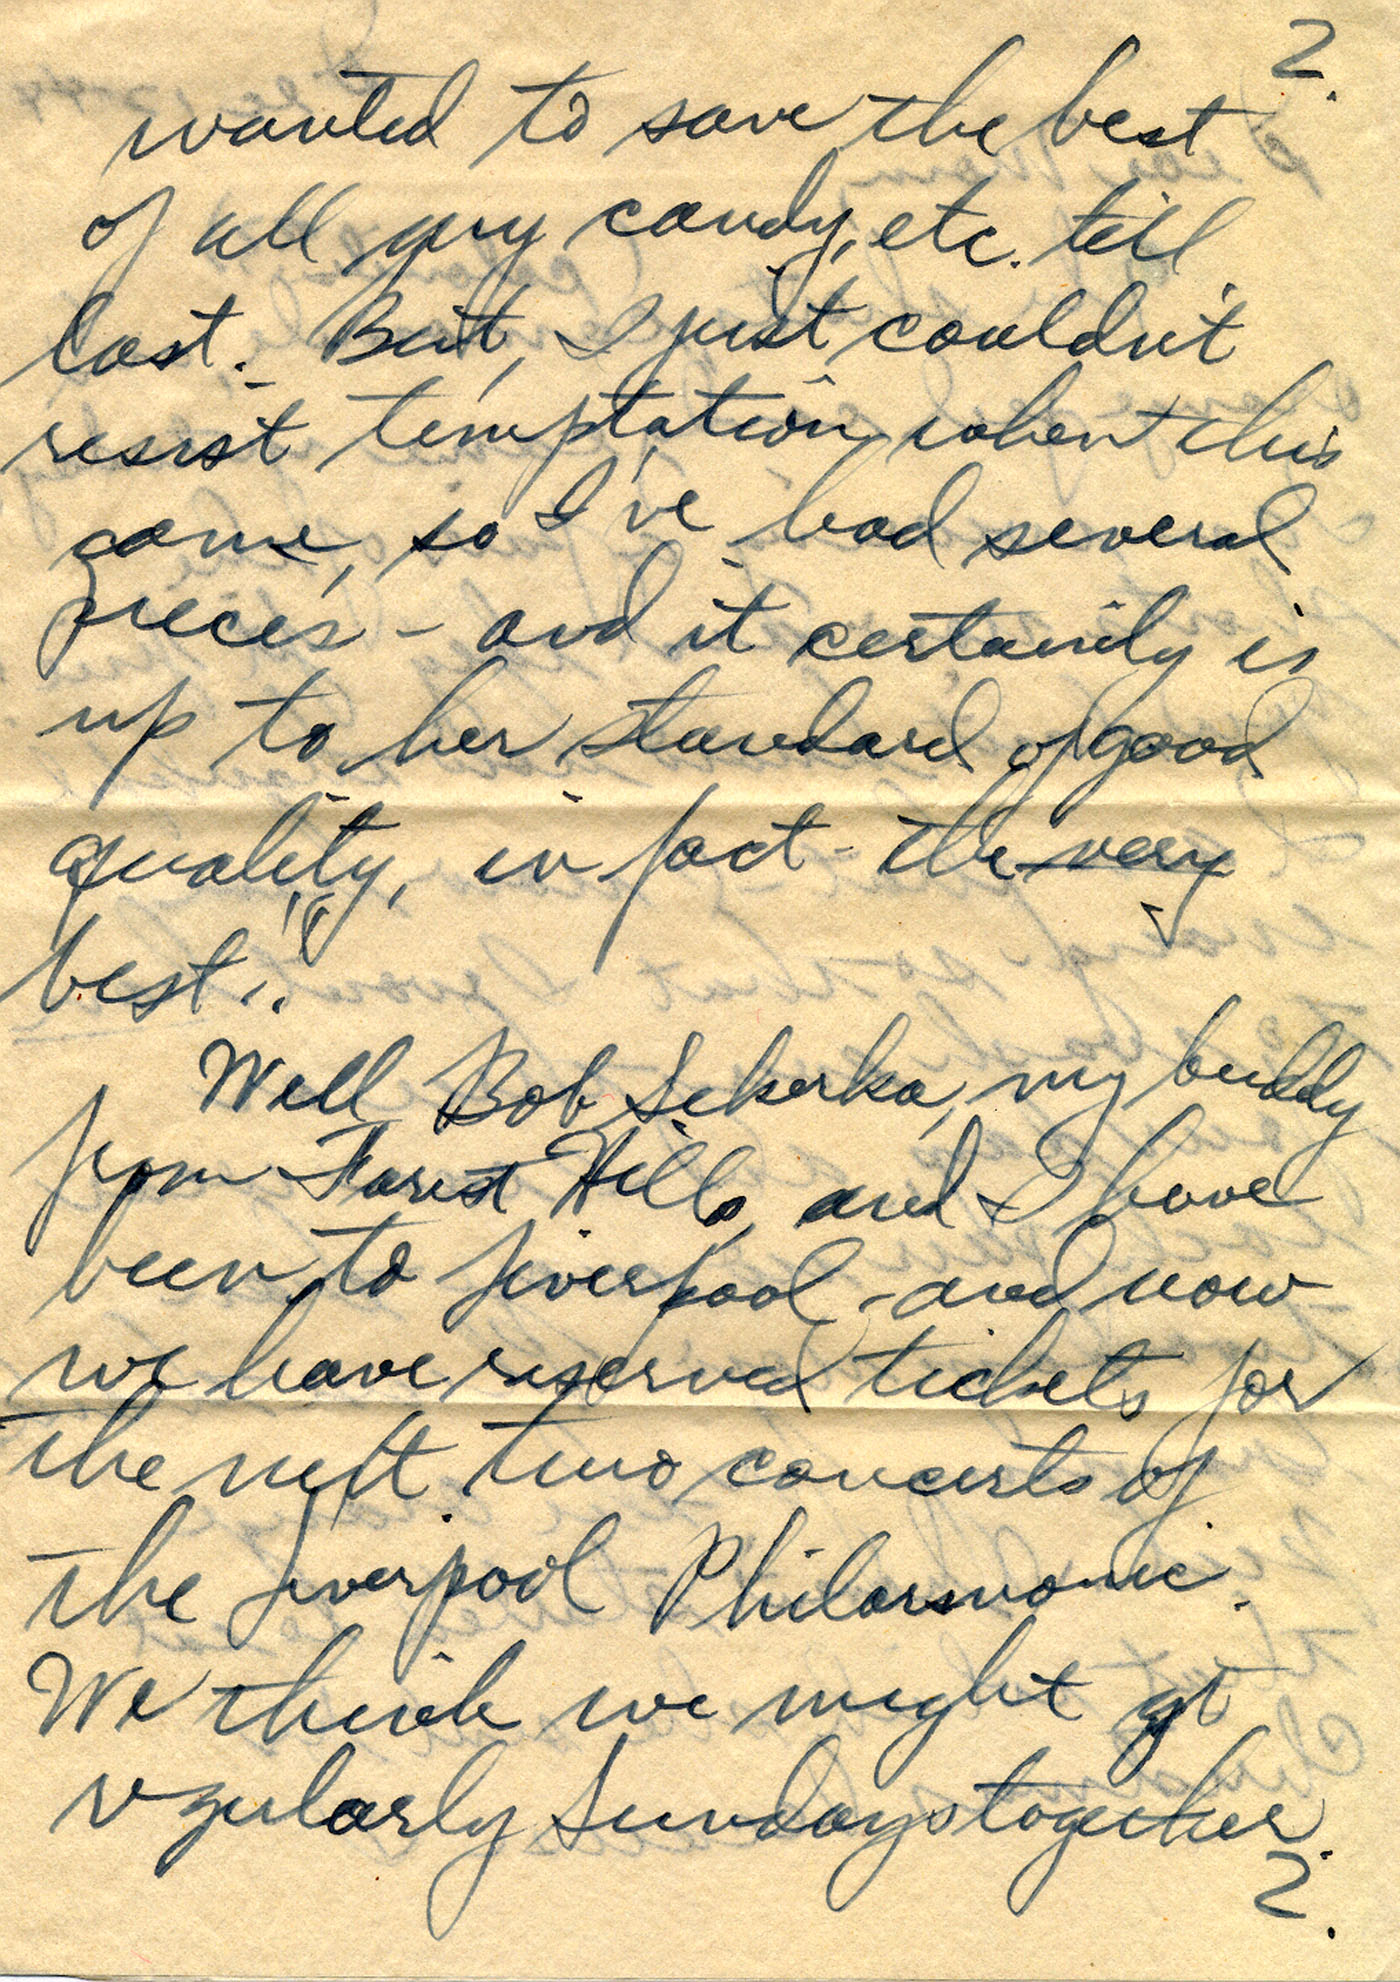 2.
wanted to save the best
of all my candy, etc. till
last. But, I just couldn't
resist temptation when this
came, so I've had several
pieces - and it certainly is
up to her standard of good
quality, in fact - the very
best!!
Well, Bob Sekerka, my buddy
from Forest Hills, and I have
been to Liverpool - and now
we have reserved tickets for
the next two concerts of
the Liverpool Philharmonic.
We think we might go
regularly Sundays together.
2.